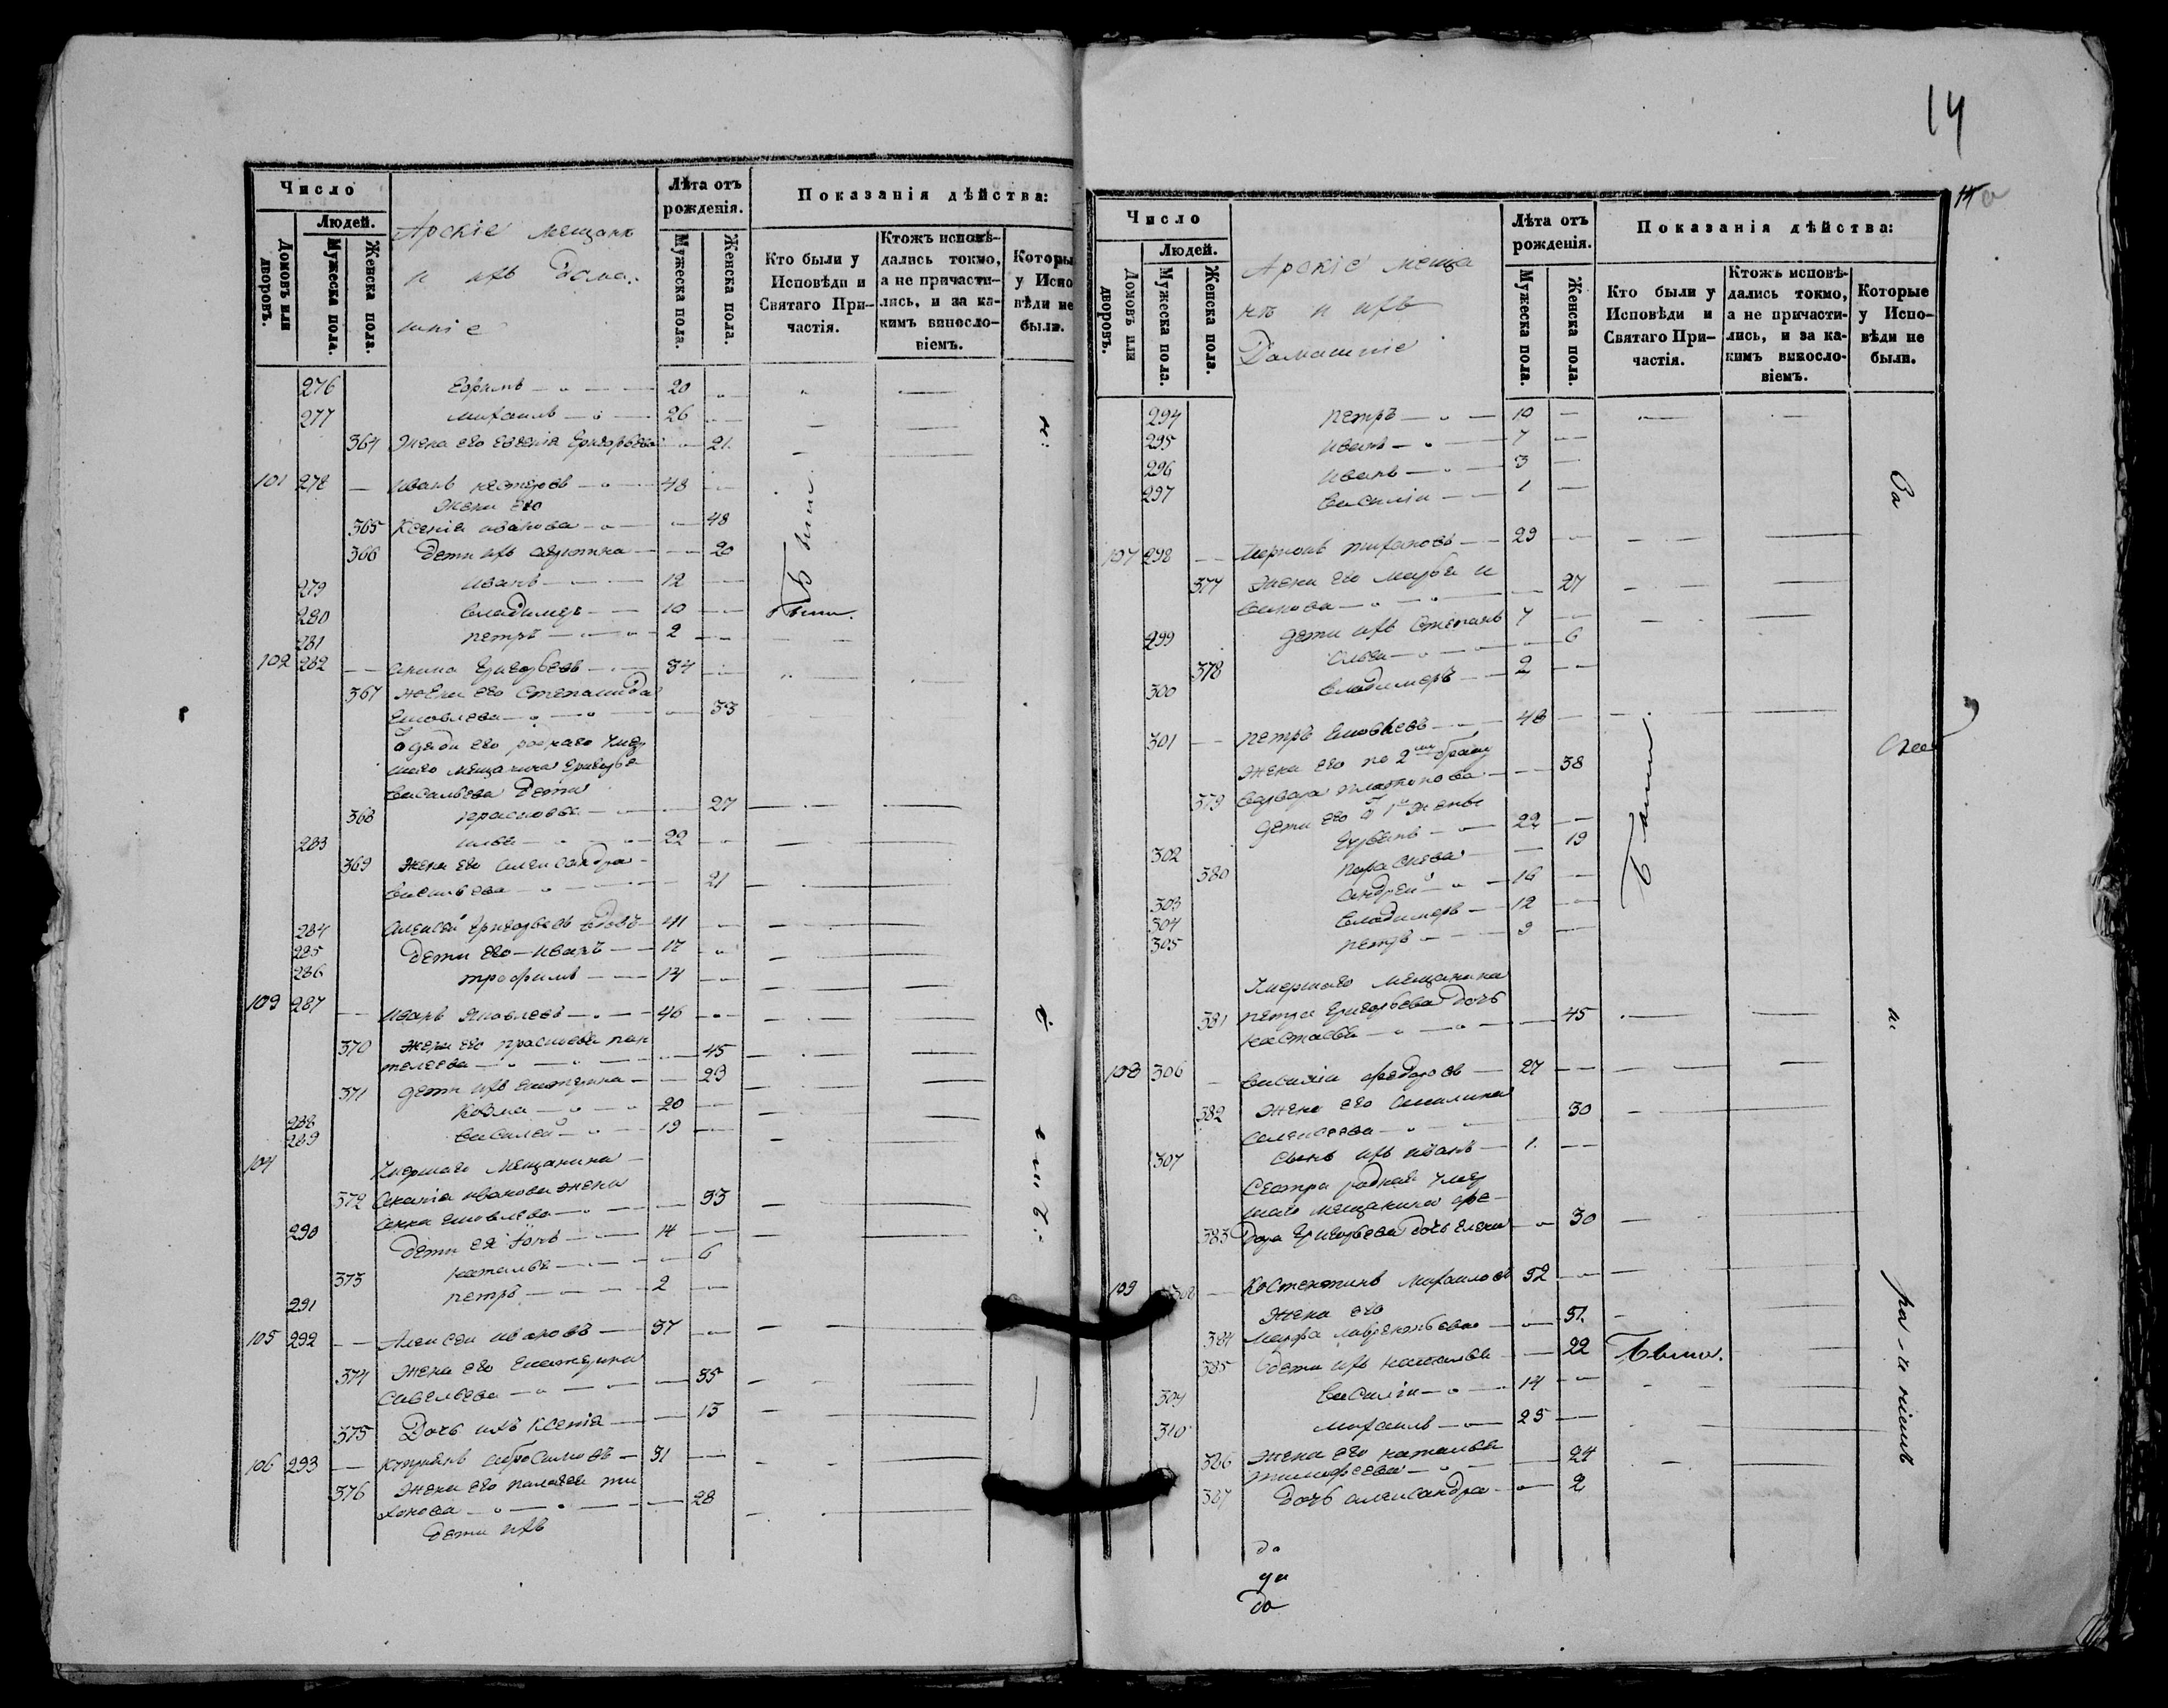 Число
Людей.
Домовъ или дворовъ.
Мужеска пола.
Женска пола.
Арскіе мещане
и ихъ Дома-
шніе
Лѣта отъ рожденія.
Мужеска пола.
Женска пола.
Показанія дѣйства:
Кто были у Исповѣди и Святаго Причастія.
Ктожъ исповѣдались токмо, а не причастились, и за какимъ винословіемъ.
Которы у Испо вѣди не были.
276 Ефримъ 20
277 Михаилъ 26
364 Жена его Евгенія Григорьева 21
101 278 Иванъ Нестеровъ 48
Жена его
365 Ксенія Иванова 48
366 Дети ихъ 20
279 Иванъ 12
280 Владимеръ 10 Были.
281 Петръ 2
102 282 Григорьевъ 34
367 Жена его Степанида
Яковлева 33
дяди его роднаго умер
шаго мещанина Григорья
Васильева Дети
368 Прасковья 27
283 Илья 22
369 Жена его Александра
Васильева 21
284 Алексей Григорьевъ вдовъ 41
285 Дети его Иванъ 17
286 Трофимъ 14
103 287 Иванъ Яковлевъ 46
370 Жена его Прасковья Пан
телеева 45
371 Дети ихъ Екатерина 23
288 Козма 20
289 Василей 19
104 Умершаго мещанина
372 Иванова жена
Анна Яковлева 33
290 Дети ея 14
373 Наталья 6
291 Петръ 2
105 292 Алексей Ивановъ 37
374 Жена его Екатерина
Савельева 35
375 Дочь ихъ Ксенія 13
106 293 Купріянъ Абросимовъ 31
376 Жена его Палагея Ти
хонова 28
Дети ихъ
14
Число
Людей.
Домовъ или дворовъ.
Мужеска пола.
Женска пола.
Арскіе меща
не и ихъ
Домашніе
Лѣта отъ рожденія.
Мужеска пола.
Женска пола.
Показанія дѣйства:
Кто были у Исповѣди и Святаго Причастія.
Ктожъ исповѣдались токмо, а не причастились, и за какимъ винословіемъ.
Которые у Исповѣди не были.
294 Петръ 10
295 Иванъ 7
296 Иванъ 3
297 Василіи 1
107 298 Тихановъ 29
377 Жена его Марья И
ванова 27
299 Дети ихъ Степанъ 7
378 Ольга 6
300 Владимеръ 2
301 Петръ Яковлевъ 48
Жена его по 2му браку
379 Варвара Платонова 38
Дети его 1й жены
302 22
380 Параскева 19
303 Андрей 16
304 Владимеръ 12
305 Петръ 9
Умершаго мещанина
381 Петра Григорьева дочь
Настасья 45
108 306 Василіи Федоровъ 27
382 Жена его Акилина
Алексеева 30
307 Сынъ ихъ Иванъ 1
Сестра родная умер
шаго мещанина Фе-
383 дора Григорьева дочь Елена 30
109 Костентинъ Михаиловъ 52
Жена его
384 Марфа Лаврентьева 51
385 Дети ихъ Наталья 22 Была.
309 Василіи 14
310 Михаилъ 25
386 Жена его Наталья
Тимофеева 24
387 Дочь Александра 2
да
ди
до